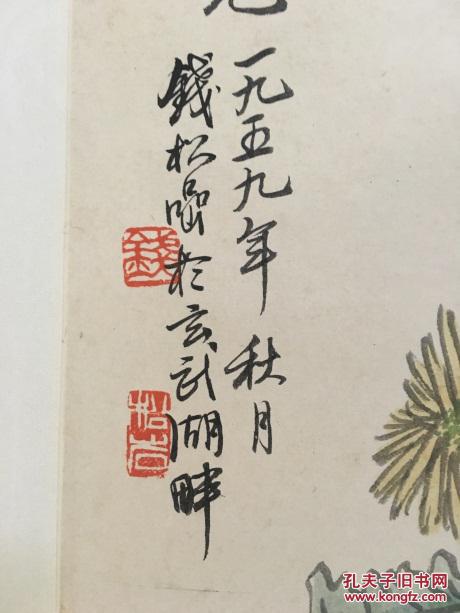 一九五九年 秋月
錢松嵒於玄武湖畔
錢
孔夫子旧书网
www.kongfz.com